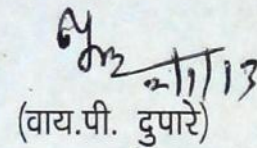 2/1/13
(वाय.पी. दुपारे)